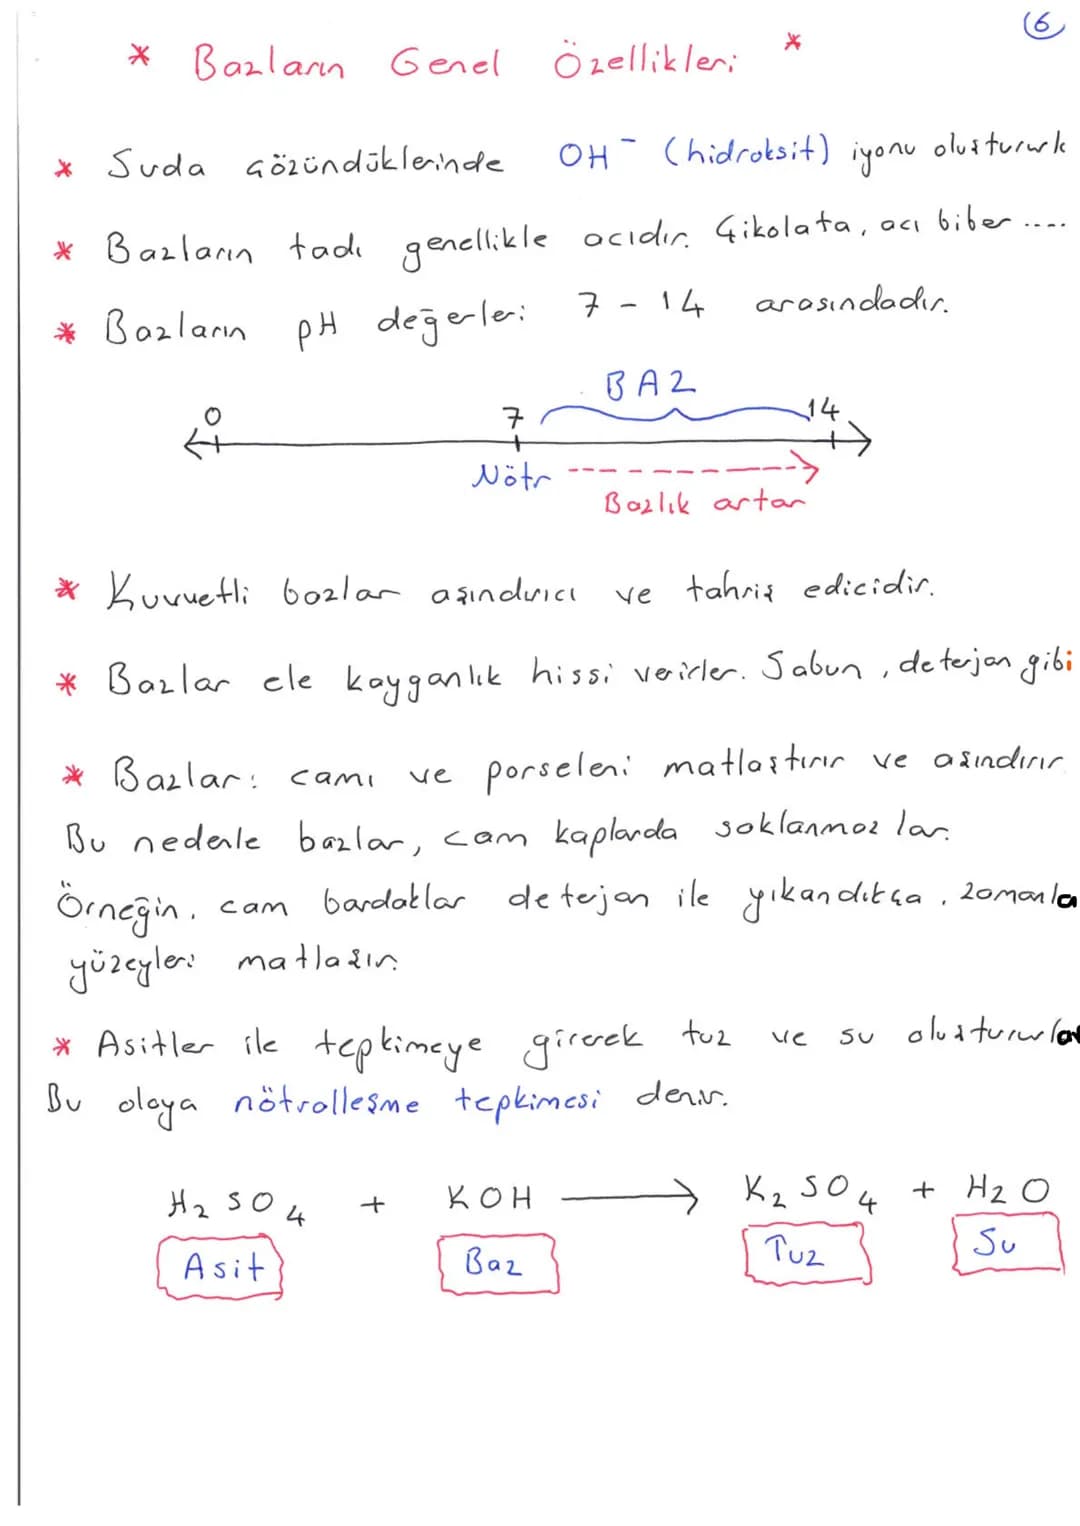 6
* Bazların Genel Özellikleri *
* Suda çözündüklerinde OH⁻ (hidroksit) iyonu oluştururlar
* Bazların tadı genellikle acıdır. Çikolata, acı biber ....
* Bazların pH değerleri 7 - 14 arasındadır.
BAZ
0 7 14
Nötr
Bazlık artar
* Kuvvetli bazlar aşındırıcı ve tahriş edicidir.
* Bazlar ele kayganlık hissi verirler. Sabun, deterjan gibi
* Bazlar: camı ve porseleni matlaştırır ve aşındırır
Bu nedenle bazlar, cam kaplarda saklanmazlar.
Örneğin, cam bardaklar detejan ile yıkandıkça, zamanla
yüzeyleri matlaşır.
* Asitler ile tepkimeye girerek tuz ve su oluştururlar
Bu olaya nötralleşme tepkimesi denir.
H₂SO₄ + KOH → K₂SO₄ + H₂O
Asit Baz Tuz Su